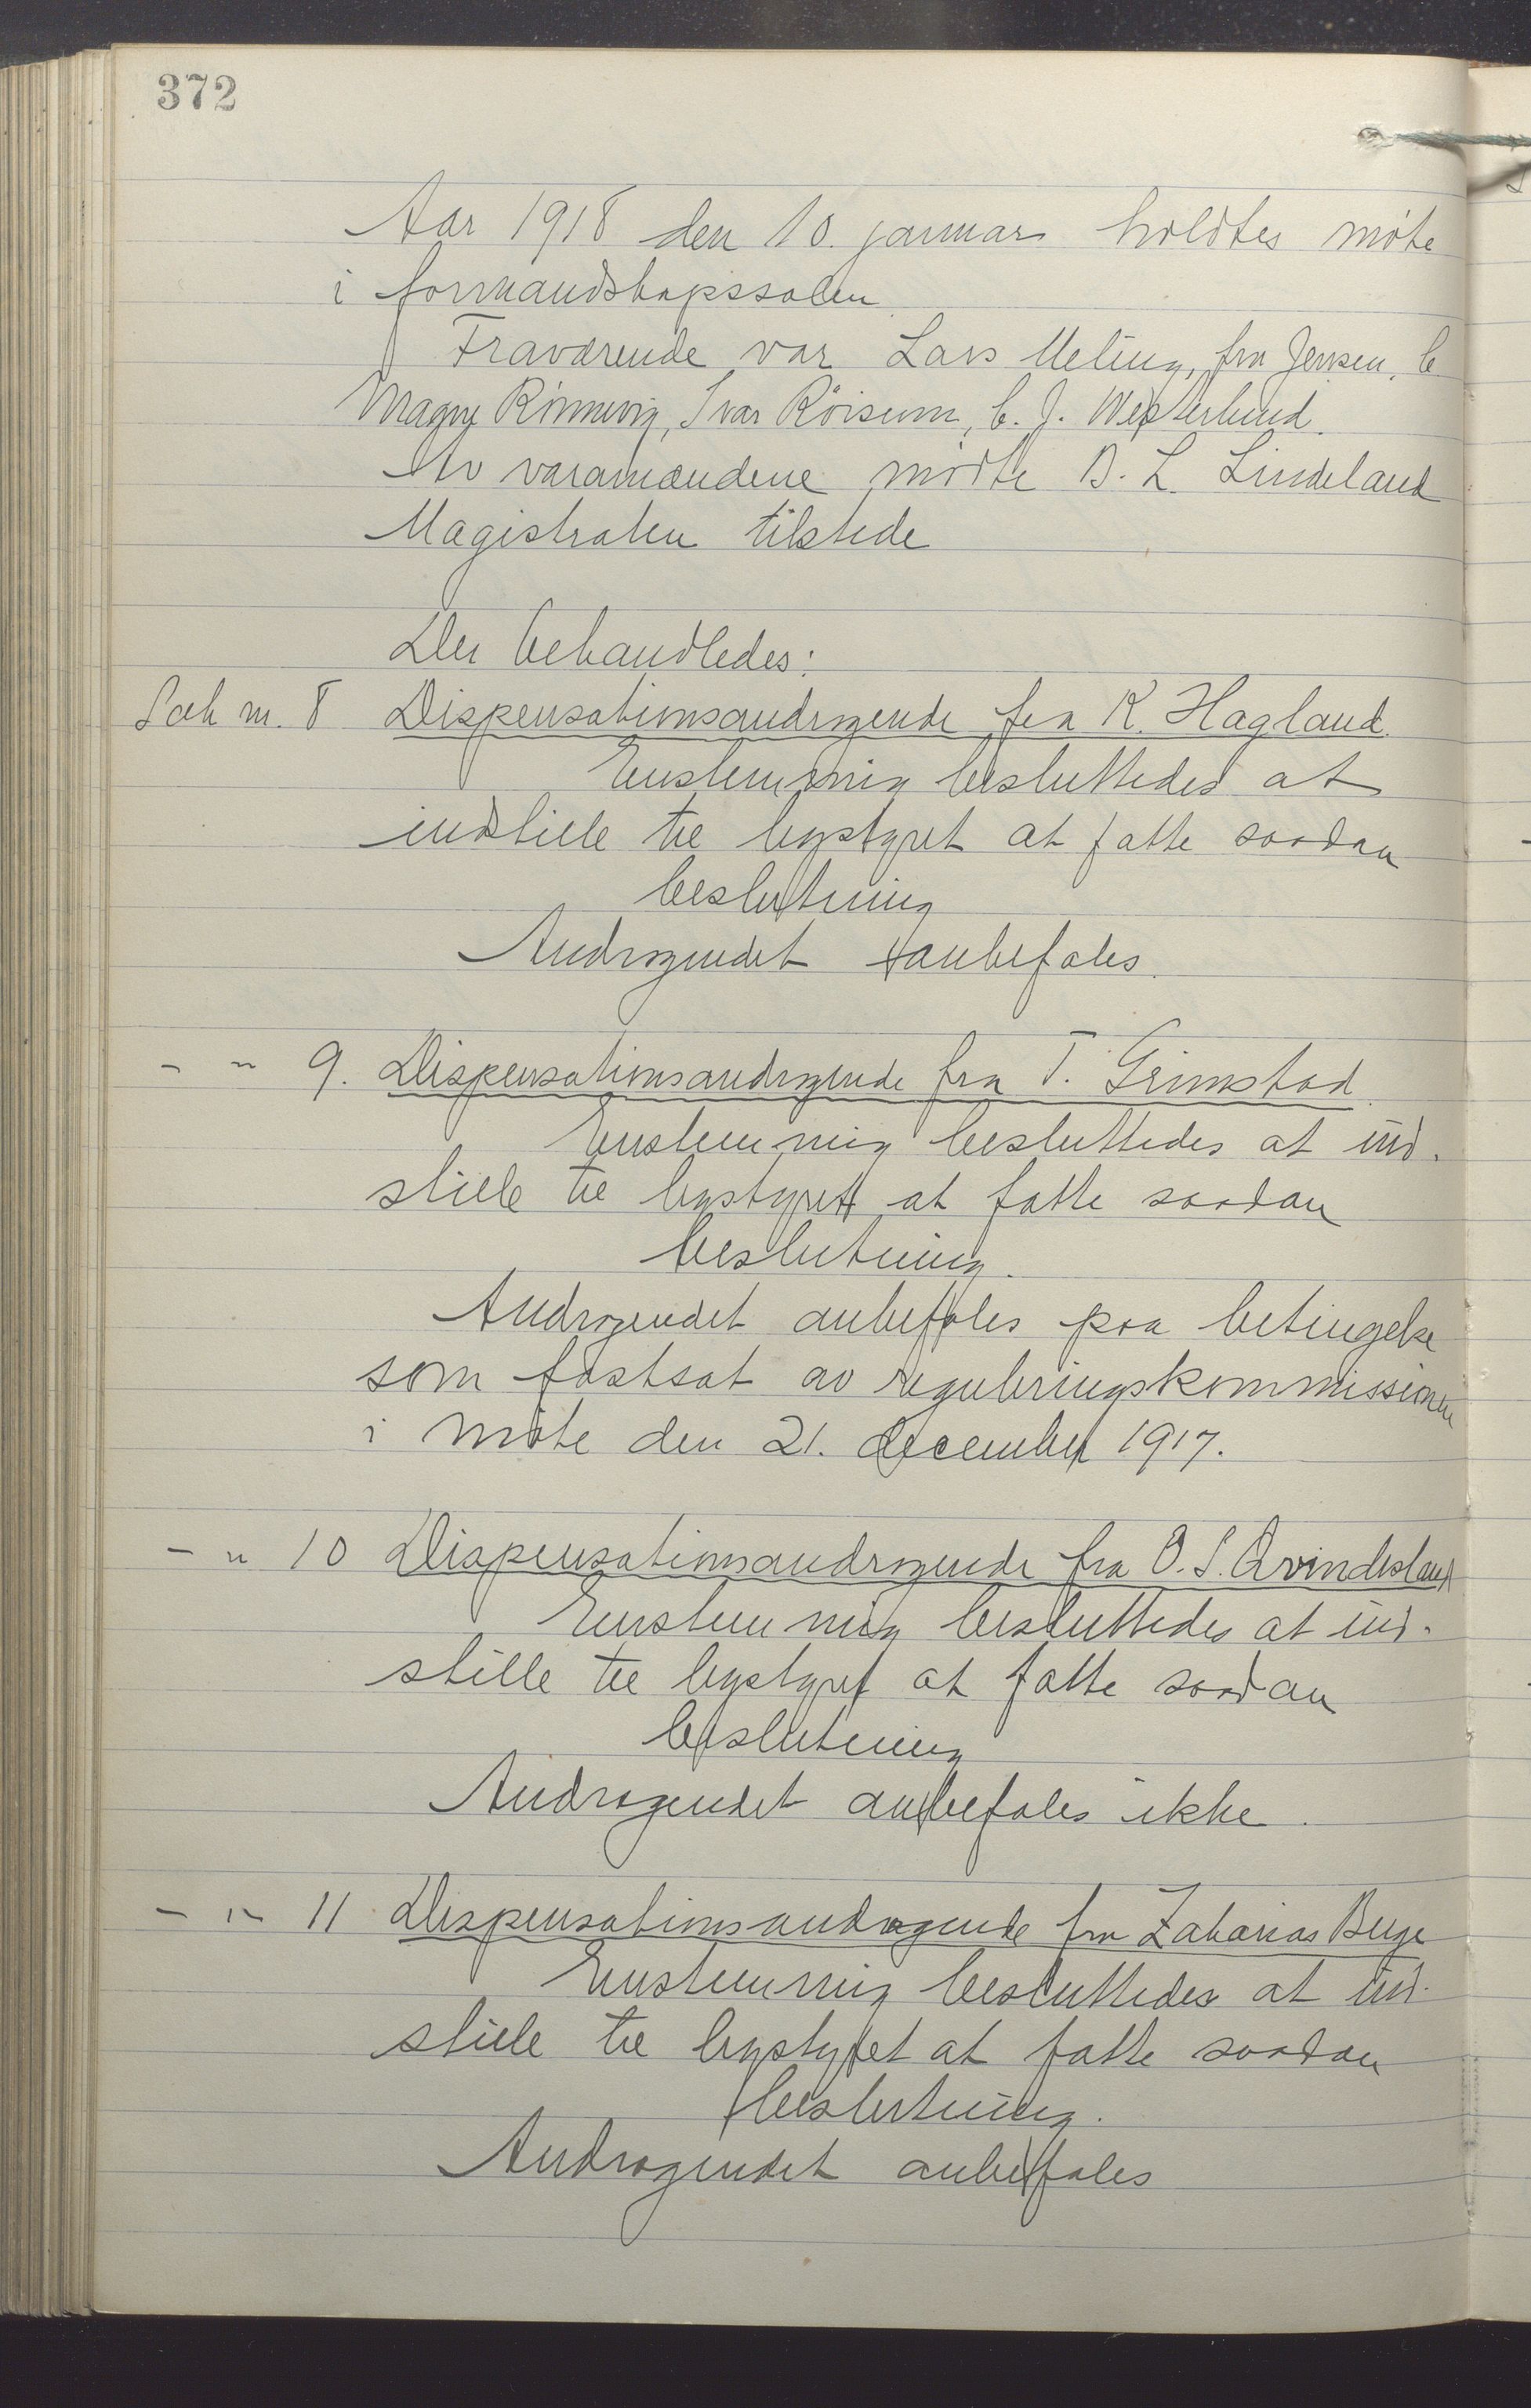 372
Aar 1918 den 10. januar holdtes møte
i formandskapssalen
Fraværende var Lars Meling, fru Jensen,
Magne Rönnevig, Ivar Röisum, C. J. Westerlund.
Av varamændene møtte B. L. Lindeland
Magistraten tilstede
Der behandledes:
Sak nr. 8 Dispensationsandragende fra K. Hagland.
Enstemmig besluttedes at
indstille til bystyret at fatte saadan
beslutning
Andragendet anbefales.
- " 9. Dispensationsandragende fra T. Grimstad.
Enstemmig besluttedes at ind-
stille til bystyret at fatte saadan
beslutning.
Andragendet anbefales paa betingelse
som fastsat av reguleringskommissionen
i møte den 21. december 1917.
- " 10 Dispensationsandragende fra O. S. Qvindesland
Enstemmig besluttedes at ind-
stille til bystyret at fatte saadan
beslutning
Andragendet anbefales ikke.
- " 11 Dispensationsandragende fra Zakarias Berge
Enstemmig besluttedes at ind-
stille til bystyret at fatte saadan
beslutning.
Andragendet anbefales